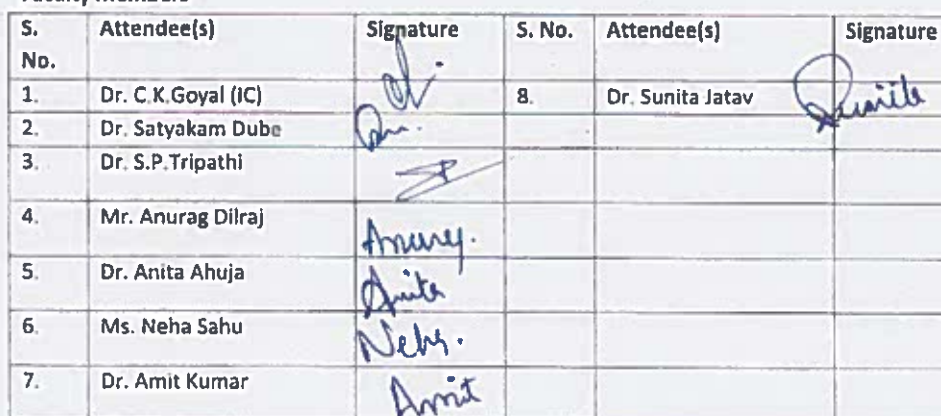 Faculty Members
S. No. Attendee(s) Signature S. No. Attendee(s) Signature
1. Dr. C.K.Goyal (IC) 8. Dr. Sunita Jatav Sunita
2. Dr. Satyakam Dube
3. Dr. S.P.Tripathi SP
4. Mr. Anurag Dilraj Anurag.
5. Dr. Anita Ahuja Anita
6. Ms. Neha Sahu Neha.
7. Dr. Amit Kumar Amit